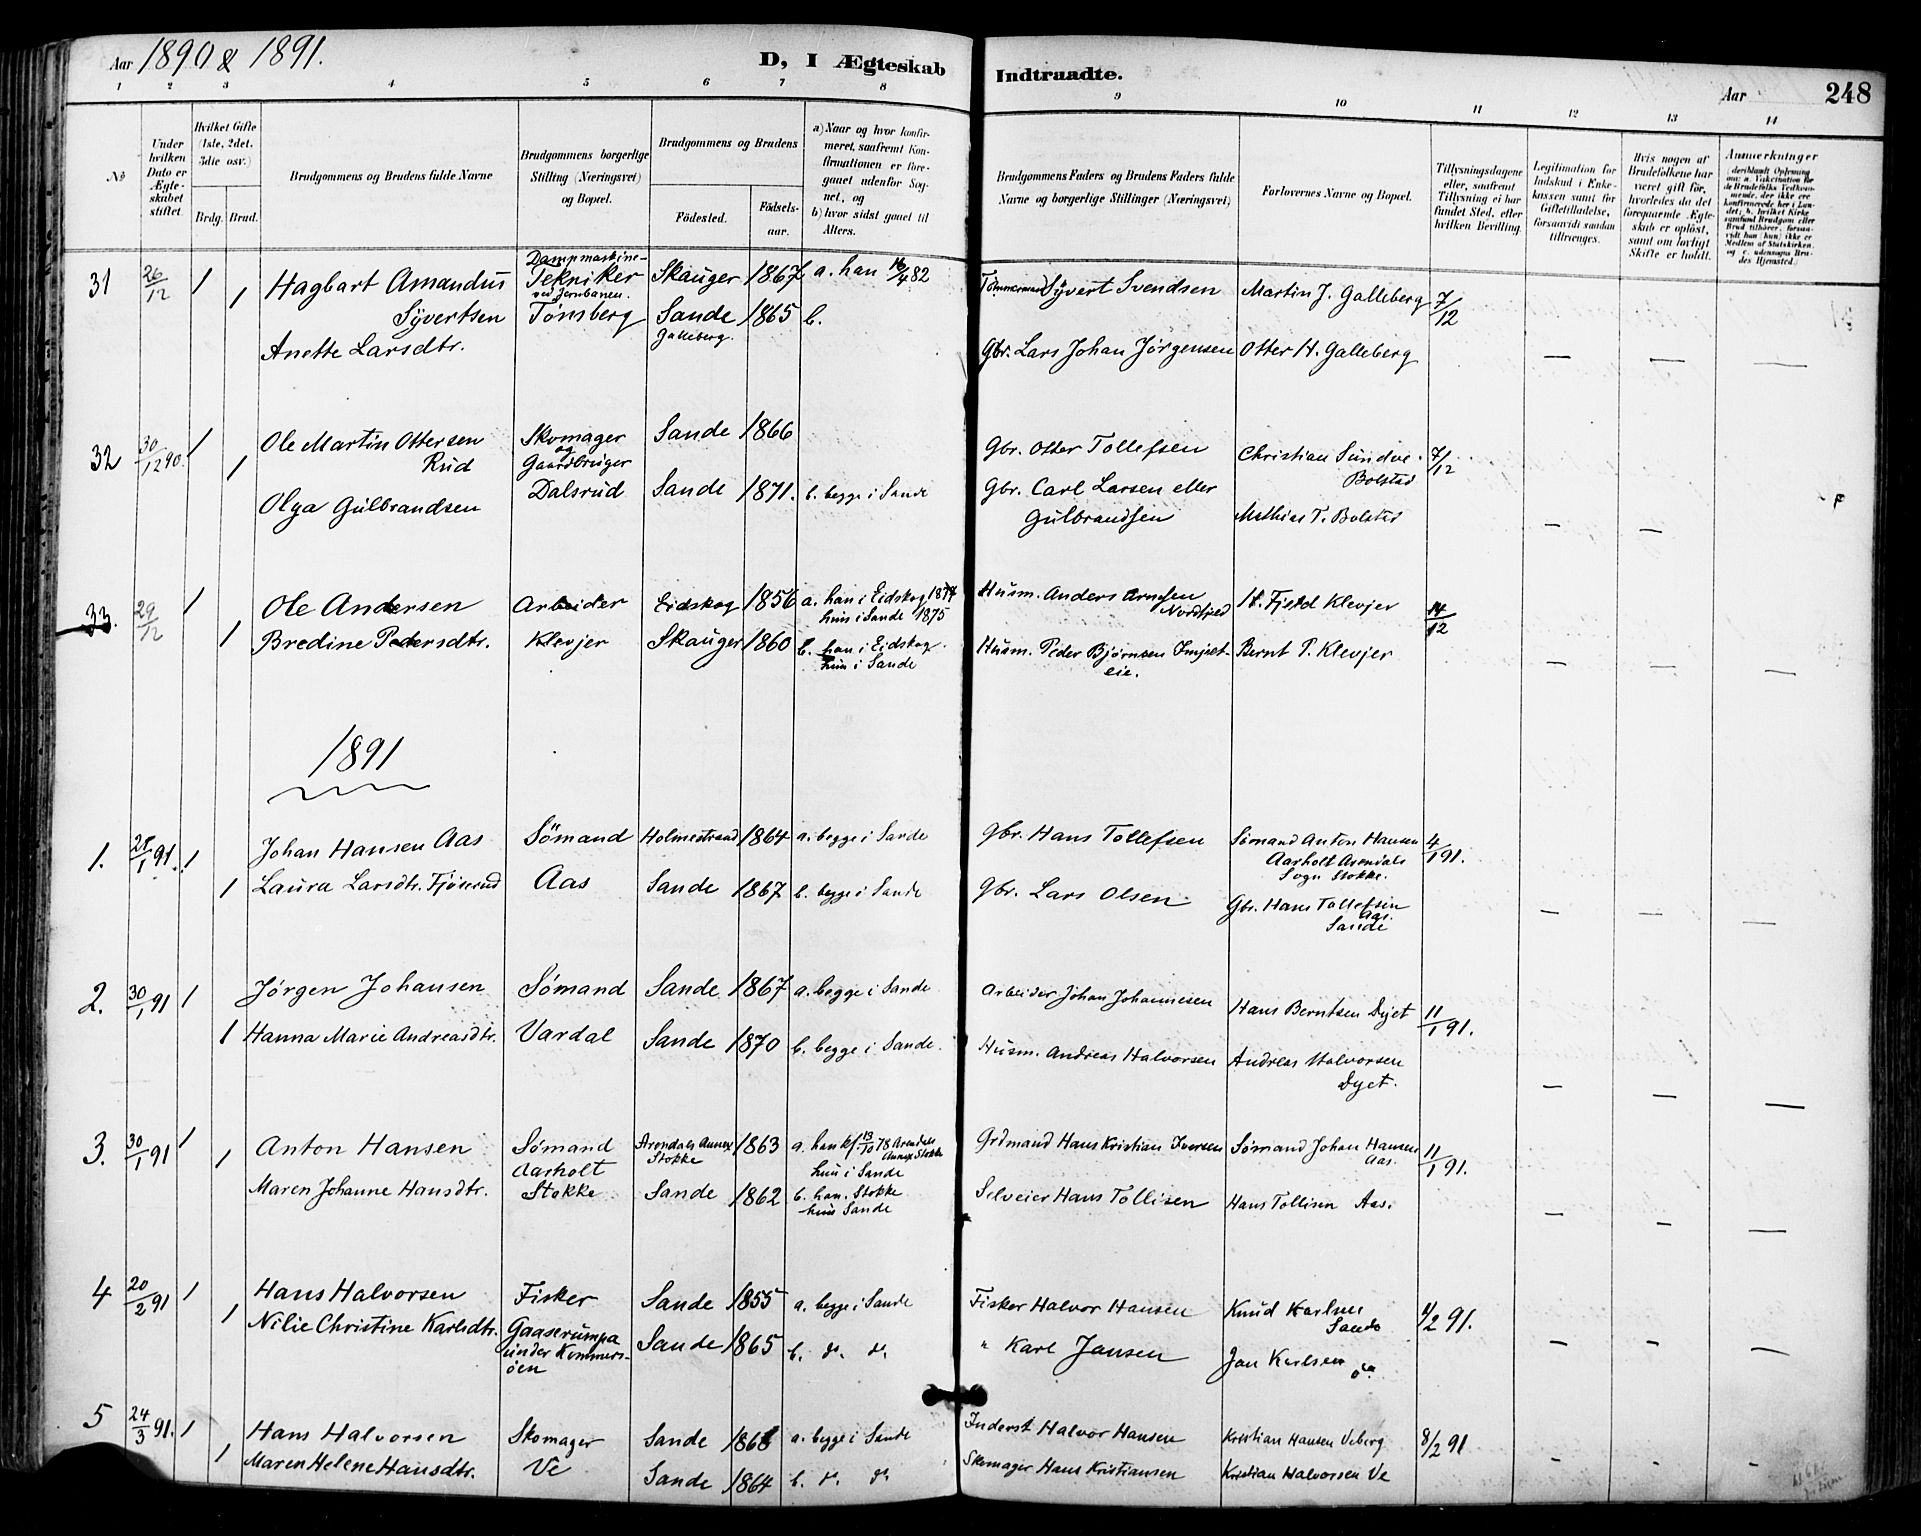 Aar 1890 & 1891.
D, I Ægteskab
Indtraadte.
Aar
248
1 2 3 4 5 6 7 8
9 10 11 12 13 14
No
Under hvilken Dato er Ægteskabet stiftet.
Hvilket Gifte (1ste, 2det, 3die osv.)
Brdg. Brud.
Brudgommens og Brudens fulde Navne
Brudgommens borgerlige Stilling (Næringsvei) og Bopæl.
Brudgommens og Brudens
Fødested.
Fødselsaar.
a) Naar og hvor konfirmeret, saafremt Konfirmationen er foregaaet udenfor Sognet, og
b) hvor sidst gaaet til Alters.
Brudgommens Faders og Brudens Faders fulde Navne og borgerlige Stillinger (Næringsvei)
Forlovernes Navne og Bopæl.
Tillysningsdagene eller, saafremt Tillysning ei har fundet Sted, efter hvilken Bevilling.
Legitimation for Indskud i Enkekassen samt for Giftetilladelse, forsaavidt saadan tiltrænges.
Hvis nogen af Brudefolkene har været gift før, hvorledes da det foregaaende Ægteskab er opløst, samt om lovligt Skifte er holdt.
Anmerkninger
31 26/12 1 Hagbart Amandus Dampmaskine- Skauger 1867 a. han 16/4 82 Tømmermand Syvert Svendsen Martin J. Galleberg 7/12
1 Syvertsen Tekniker ved Jernbanen.
Anette Larsdtr. Tønsberg Sande Galleberg. 1865 b. Gbr. Lars Johan Jørgensen Otter H. Galleberg — — —
32 30/12 90. 1 Ole Martin Ottersen Skomager Sande 1866 Gbr. Otter Tollefsen Christian Sundve 7/12
1 Rud og Gaardbruger Bolsted
Olga Gulbrandsen Dalsrud Sande 1871. b. begge i Sande Gbr. Carl Larsen eller Mathias T. Bolsted — —
Gulbrandsen
33. 29/12 1 Ole Andersen Arbeider Eidskog 1856 a. han i Eidskog 1874 Husm. Anders Arnesen H. Fjeld Klevjer 14/12
hun i Sande 1875
1 Bredine Pedersdtr. Klevjer Skauger 1860 b. han i Eidskog Husm. Peder Bjørnsen Bernt P. Klevjer — — —
hun i Sande eie.
1891
1. 25/1 91. 1 Johan Hansen Aas Sömand Holmestrand 1864 a. begge i Sande Gbr. Hans Tollefsen Sömand Anton Hansen 4/1 91.
Aarholt Arendals
Sogn Stokke.
1 Laura Larsdtr. Fjöserud Aas Sande 1867 b. begge i Sande Gbr. Lars Olsen Gbr. Hans Tollefsen — — —
Aas.
Sande
2. 30/1 91 1 Jørgen Johansen Sømand Sande 1867 a. begge i Sande Arbeider Johan Johannesen Hans Berntsen Dyet 11/1 91.
1 Hanna Marie Andreasdtr. Vardal Sande 1870 b. begge i Sande. Husm. Andreas Halvorsen Andreas Halvorsen — — —
Dyet.
3. 30/1 91 1 Anton Hansen Sømand Arendals Annex 1863 a. han kf. 13/10 78 Arendals Grdmand Hans Kristian Iversen Sømand Johan Hansen 11/1 91.
1 Aarholt Stokke Annex Stokke Aas.
hun i Sande
Maren Johanne Hansdtr. Stokke Sande 1862 b. han. Stokke Selveier Hans Tollisen Hans Tollisen Aas. — — —
hun Sande
4 20/2 91 1 Hans Halvorsen Fisker Sande 1855 a. begge i Sande Fisker Halvor Hansen Knud Karlsen 11/2 91.
Sande
1 Nilie Christine Karlsdtr. Gaaserumpa Sande 1865 b. do. do. " Karl Jansen Jan Karlsen do. — — —
under Kommersöen
5 24/3 91. 1 Hans Halvorsen Skomager Sande 1868 a. begge i Sande Inderst Halvor Hansen Kristian Hansen Veberg 8/2 91
1 Maren Helene Hansdtr. Ve Sande 1864 b. do. do. Skomager Hans Kristiansen Kristian Halvorsen Ve - - -